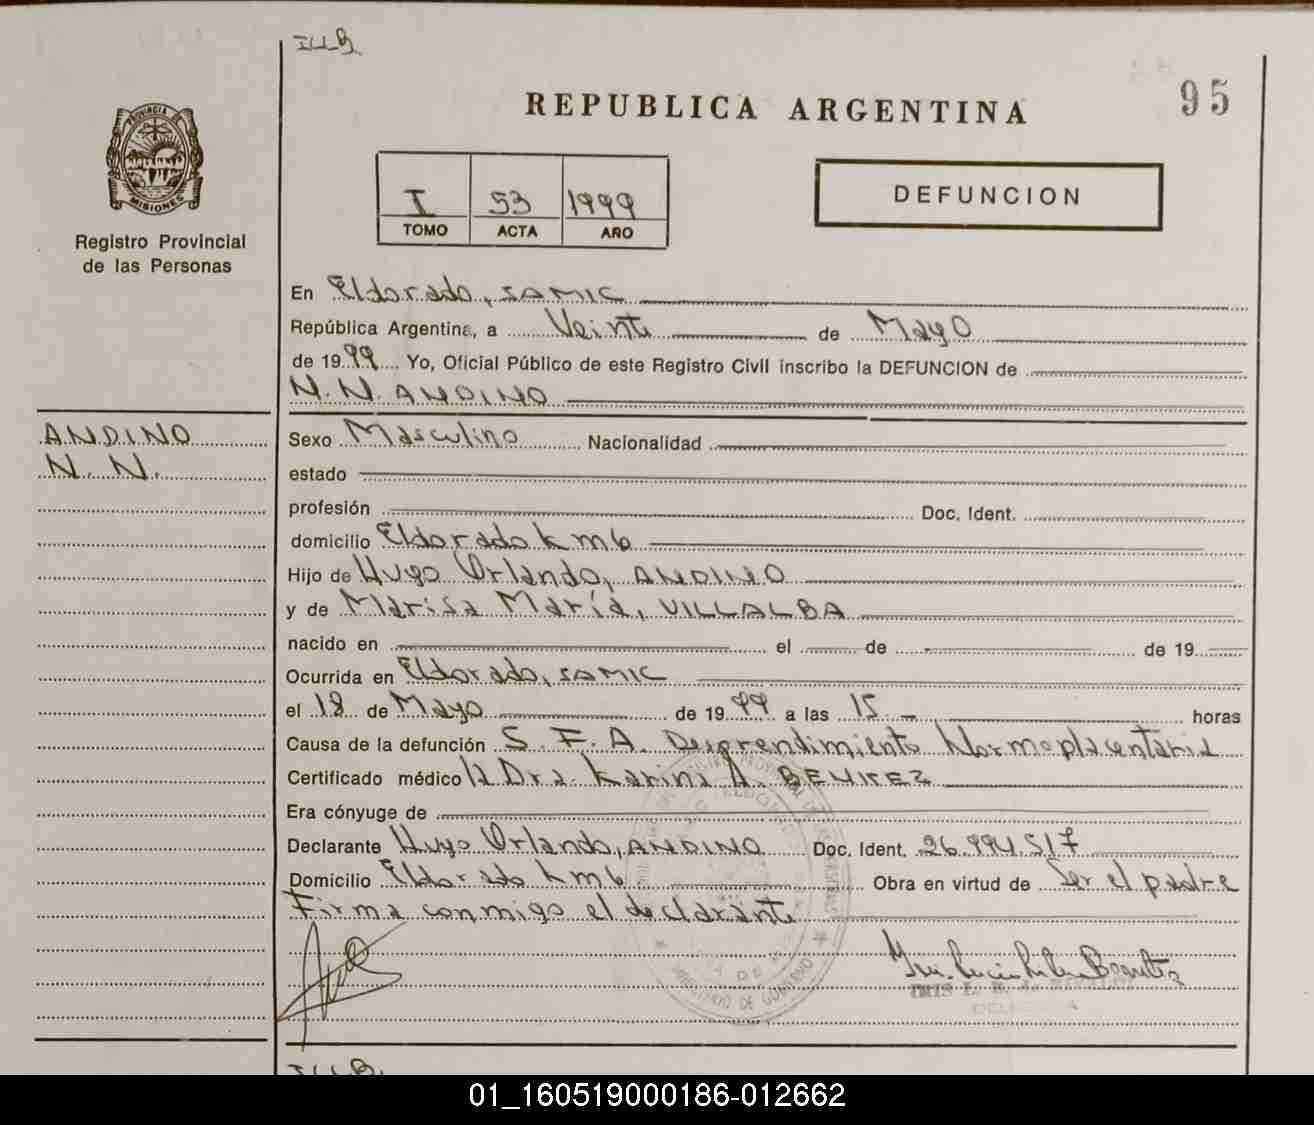 I.L.B.
REPUBLICA ARGENTINA
95
PROVINCIA DE
MISIONES
Registro Provincial
de las Personas
I 53 1999
TOMO ACTA AÑO
DEFUNCION
En Eldorado, SAMIC
República Argentina, a Veinte de Mayo
de 1999 Yo, Oficial Público de este Registro Civil inscribo la DEFUNCION de
N.N. ANDINO
ANDINO
N. N.
Sexo Masculino Nacionalidad
estado
profesión Doc. Ident.
domicilio Eldorado km 6
Hijo de Hugo Orlando, ANDINO
y de Marisa María, VILLALBA
nacido en el de de 19
Ocurrida en Eldorado, SAMIC
el 18 de Mayo de 1999 a las 15 horas
Causa de la defunción S.F.A. Desprendimiento Normoplacentaria
Certificado médico la Dra. Karina A. BENITEZ
Era cónyuge de
Declarante Hugo Orlando, ANDINO Doc. Ident. 26.994.517
Domicilio Eldorado km 6 Obra en virtud de Ser el padre
Firma conmigo el declarante
MINISTERIO DE GOBIERNO
01_160519000186-012662